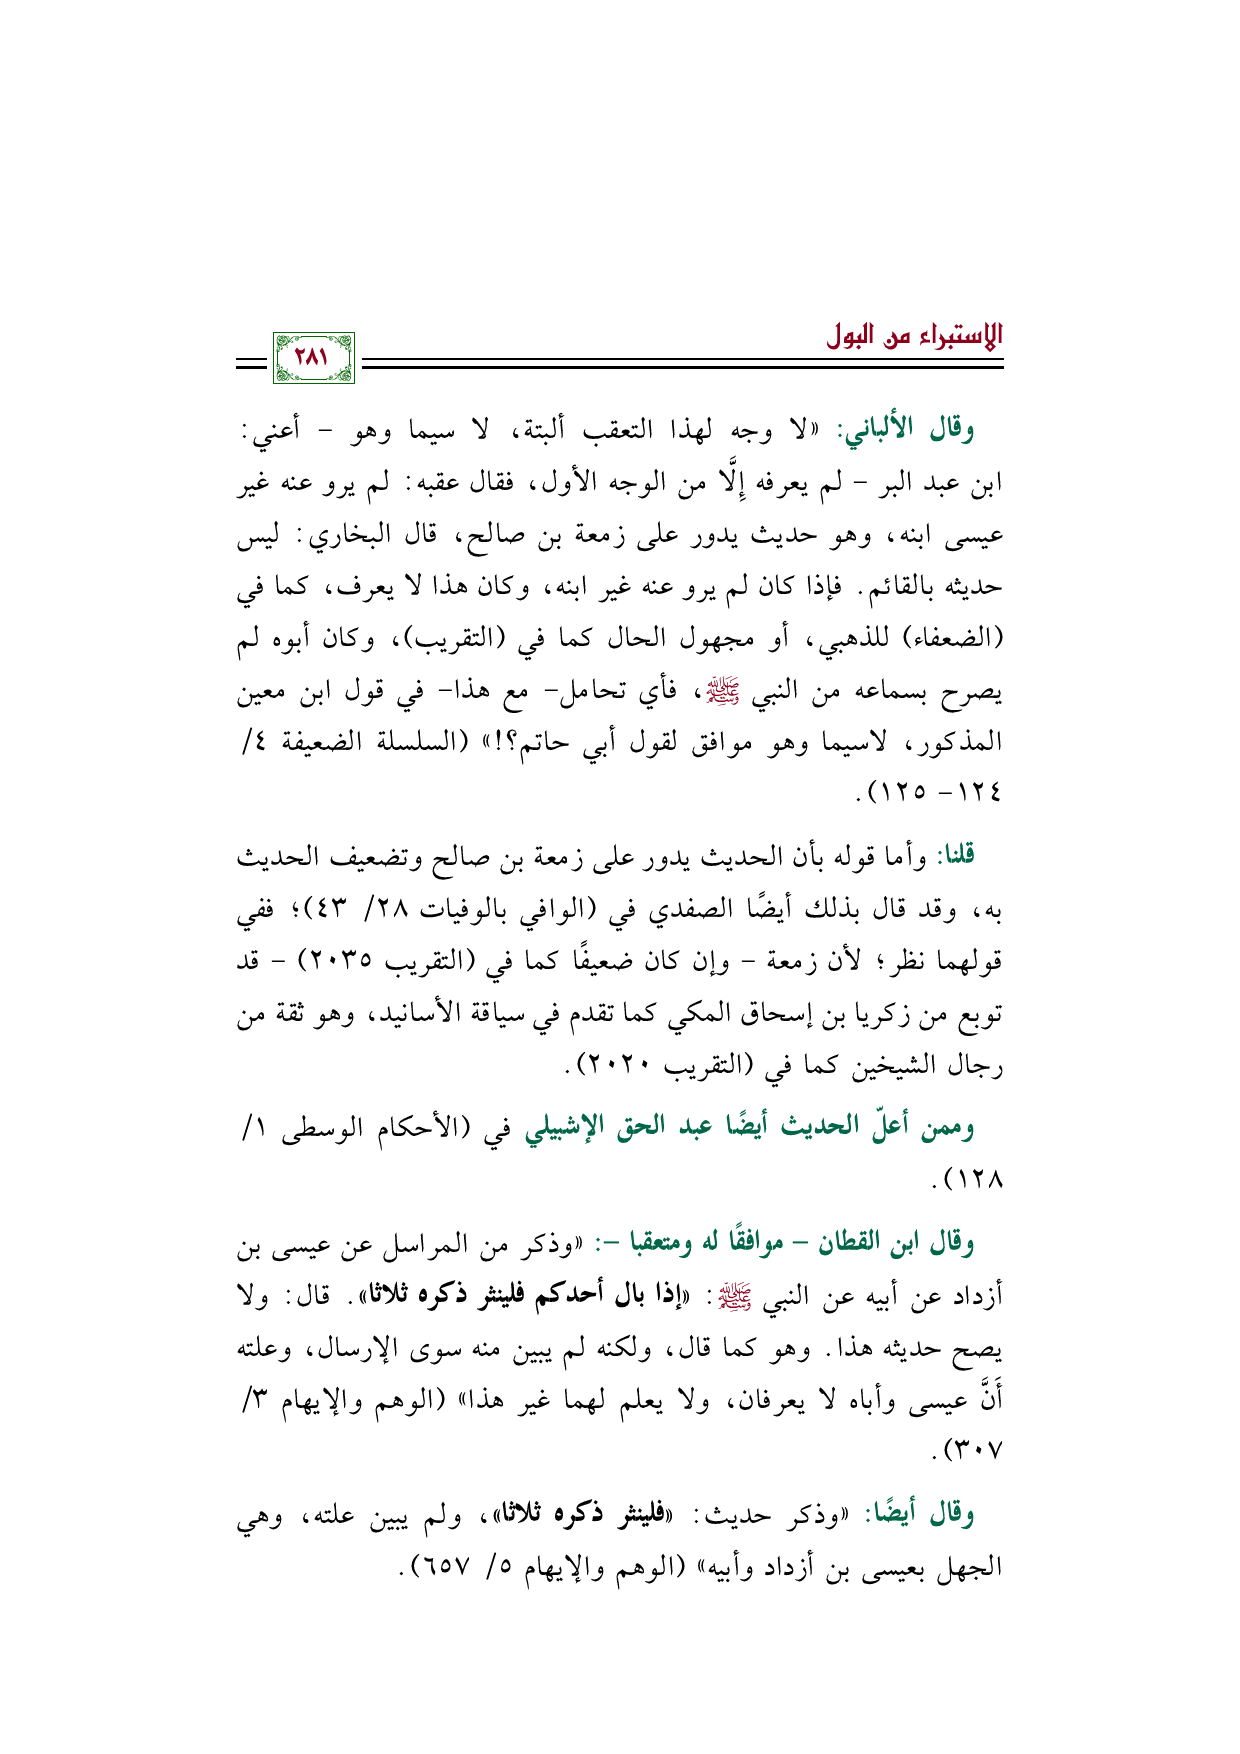 الاستبراء من البول
٢٨١
وقال الألباني: «لا وجه لهذا التعقب ألبتة، لا سيما وهو – أعني:
ابن عبد البر – لم يعرفه إِلَّا من الوجه الأول، فقال عقبه: لم يرو عنه غير
عيسى ابنه، وهو حديث يدور على زمعة بن صالح، قال البخاري: ليس
حديثه بالقائم. فإذا كان لم يرو عنه غير ابنه، وكان هذا لا يعرف، كما في
(الضعفاء) للذهبي، أو مجهول الحال كما في (التقريب)، وكان أبوه لم
يصرح بسماعه من النبي ﷺ، فأي تحامل– مع هذا– في قول ابن معين
المذكور، لاسيما وهو موافق لقول أبي حاتم؟!» (السلسلة الضعيفة ٤/
١٢٤– ١٢٥).
قلنا: وأما قوله بأن الحديث يدور على زمعة بن صالح وتضعيف الحديث
به، وقد قال بذلك أيضًا الصفدي في (الوافي بالوفيات ٢٨/ ٤٣)؛ ففي
قولهما نظر؛ لأن زمعة – وإن كان ضعيفًا كما في (التقريب ٢٠٣٥) – قد
توبع من زكريا بن إسحاق المكي كما تقدم في سياقة الأسانيد، وهو ثقة من
رجال الشيخين كما في (التقريب ٢٠٢٠).
وممن أعلّ الحديث أيضًا عبد الحق الإشبيلي في (الأحكام الوسطى ١/
١٢٨).
وقال ابن القطان – موافقًا له ومتعقبا –: «وذكر من المراسل عن عيسى بن
أزداد عن أبيه عن النبي ﷺ: «إذا بال أحدكم فلينثر ذكره ثلاثا». قال: ولا
يصح حديثه هذا. وهو كما قال، ولكنه لم يبين منه سوى الإرسال، وعلته
أَنَّ عيسى وأباه لا يعرفان، ولا يعلم لهما غير هذا» (الوهم والإيهام ٣/
٣٠٧).
وقال أيضًا: «وذكر حديث: «فلينثر ذكره ثلاثا»، ولم يبين علته، وهي
الجهل بعيسى بن أزداد وأبيه» (الوهم والإيهام ٥/ ٦٥٧).